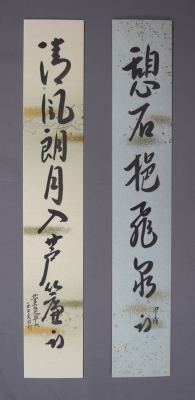 憩石挹飛泉
清風朗月入芦簾